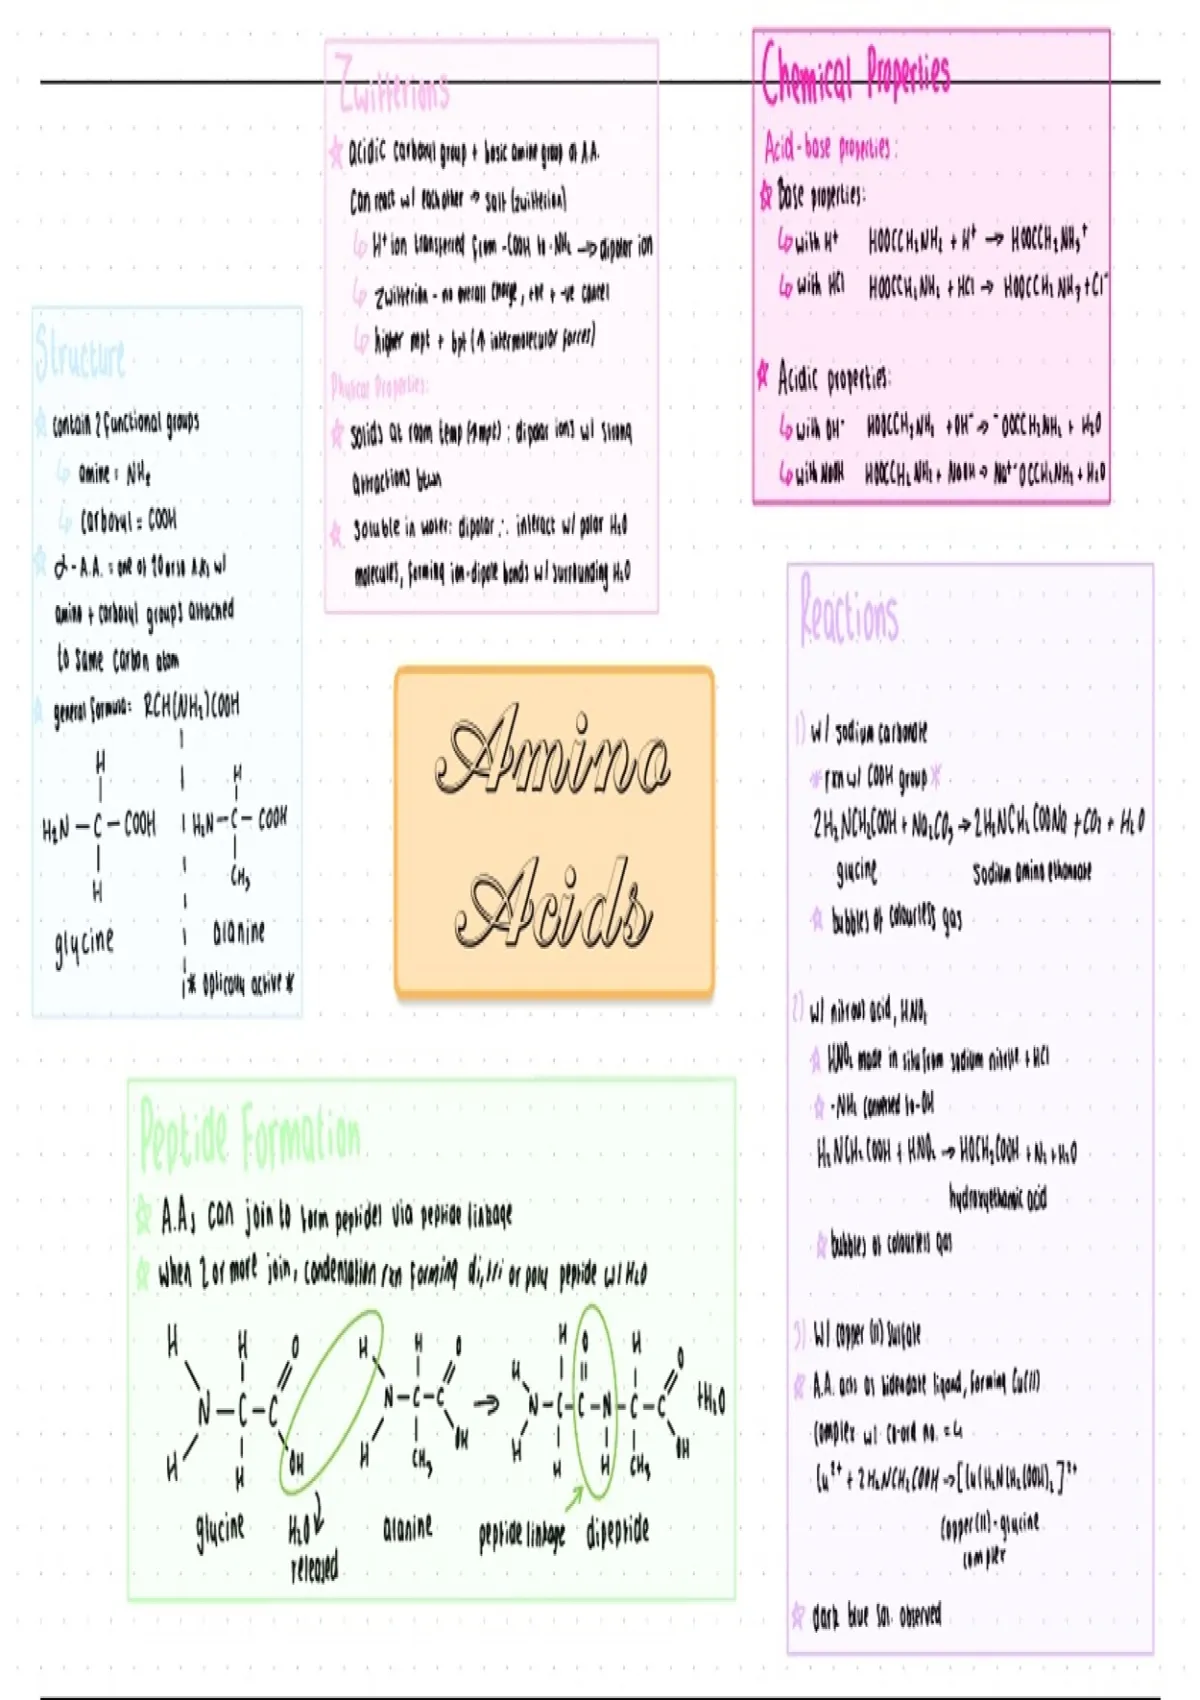 Zwitterions
acidic carboxyl group + basic amine group of A.A.
can react w/ each other → salt (zwitterion)
↳ H⁺ ion transferred from -COOH to -NH₂ → dipolar ion
↳ Zwitterion - no overall charge, +ve + -ve cancel
↳ higher mpt + bpt (↑ intermolecular forces)
Physical Properties:
solids at room temp (↑mpt) : dipolar ions w/ strong
attractions btwn
soluble in water: dipolar ∴ interact w/ polar H₂O
molecules, forming ion-dipole bonds w/ surrounding H₂O
Chemical Properties
Acid-base properties:
Base properties:
↳ with H⁺ HOOCCH₂NH₂ + H⁺ → HOOCCH₂NH₃⁺
↳ with HCl HOOCCH₂NH₂ + HCl → HOOCCH₂NH₃ + Cl⁻
Acidic properties:
↳ with OH⁻ HOOCCH₂NH₂ + OH⁻ → ⁻OOCCH₂NH₂ + H₂O
↳ with NaOH HOOCCH₂NH₂ + NaOH → Na⁺⁻OCCH₂NH₂ + H₂O
Structure
contain 2 functional groups
↳ amine = NH₂
↳ carboxyl = COOH
α-A.A. = one of 20 or so A.As w/
amino + carboxyl groups attached
to same carbon atom
general formula: RCH(NH₂)COOH
H
H₂N - C - COOH
H
glycine
H
H₂N - C - COOH
CH₃
alanine
* optically active *
Amino
Acids
Reactions
1) w/ sodium carbonate
* rxn w/ COOH group *
2H₂NCH₂COOH + Na₂CO₃ → 2H₂NCH₂COONa + CO₂ + H₂O
glycine sodium amino ethanoate
bubbles of colourless gas
2) w/ nitrous acid, HNO₂
HNO₂ made in situ from sodium nitrite + HCl
-NH₂ converted to -OH
H₂NCH₂COOH + HNO₂ → HOCH₂COOH + N₂ + H₂O
hydroxyethanoic acid
bubbles of colourless gas
3) w/ copper (II) sulfate
A.A. acts as bidendate ligand, forming Cu(II)
complex w/ co-ord no. = 4
Cu²⁺ + 2H₂NCH₂COOH → [Cu(H₂NCH₂COOH)₂]²⁺
copper(II)-glycine
complex
dark blue sol. observed
Peptide Formation
A.As can join to form peptides via peptide linkage
when 2 or more join, condensation rxn forming di, tri or poly peptide w/ H₂O
H H O H H O H O H O
N - C - C N - C - C → N - C - C - N - C - C + H₂O
H H OH H CH₃ OH H H H CH₃ OH
glycine H₂O alanine peptide linkage dipeptide
released